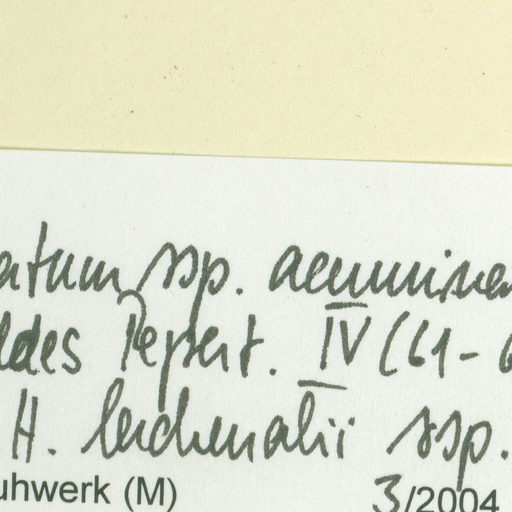 atum ssp. acumin
ldes Repert. IV (61-6
H. leichenalii ssp.
uhwerk (M) 3/2004